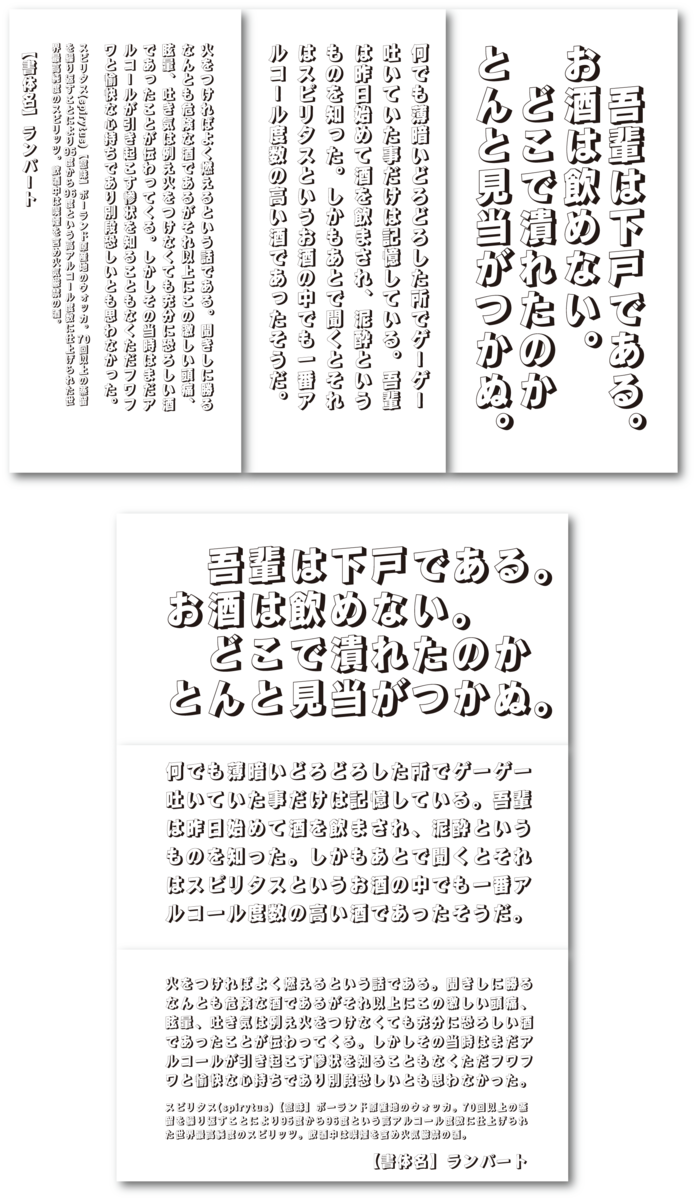 吾輩は下戸である。
お酒は飲めない。
どこで潰れたのか
とんと見当がつかぬ。
何でも薄暗いどろどろした所でゲーゲー
吐いていた事だけは記憶している。吾輩
は昨日始めて酒を飲まされ、泥酔という
ものを知った。しかもあとで聞くとそれ
はスピリタスというお酒の中でも一番ア
ルコール度数の高い酒であったそうだ。
火をつければよく燃えるという話である。聞きしに勝る
なんとも危険な酒であるがそれ以上にこの激しい頭痛、
眩暈、吐き気は例え火をつけなくても充分に恐ろしい酒
であったことが伝わってくる。しかしその当時はまだア
ルコールが引き起こす惨状を知ることもなくただフワフ
ワと愉快な心持ちであり別段恐しいとも思わなかった。
スピリタス(spirytus)【意味】ポーランド原産地のウォッカ。70回以上の蒸留
を繰り返すことにより95度から96度という高アルコール度数に仕上げられた世
界最高純度のスピリッツ。飲酒中は喫煙を含め火気厳禁の酒。
【書体名】ランパート
吾輩は下戸である。
お酒は飲めない。
どこで潰れたのか
とんと見当がつかぬ。
何でも薄暗いどろどろした所でゲーゲー
吐いていた事だけは記憶している。吾輩
は昨日始めて酒を飲まされ、泥酔という
ものを知った。しかもあとで聞くとそれ
はスピリタスというお酒の中でも一番ア
ルコール度数の高い酒であったそうだ。
火をつければよく燃えるという話である。聞きしに勝る
なんとも危険な酒であるがそれ以上にこの激しい頭痛、
眩暈、吐き気は例え火をつけなくても充分に恐ろしい酒
であったことが伝わってくる。しかしその当時はまだア
ルコールが引き起こす惨状を知ることもなくただフワフ
ワと愉快な心持ちであり別段恐しいとも思わなかった。
スピリタス(spirytus)【意味】ポーランド原産地のウォッカ。70回以上の蒸
留を繰り返すことにより95度から96度という高アルコール度数に仕上げられ
た世界最高純度のスピリッツ。飲酒中は喫煙を含め火気厳禁の酒。
【書体名】ランパート